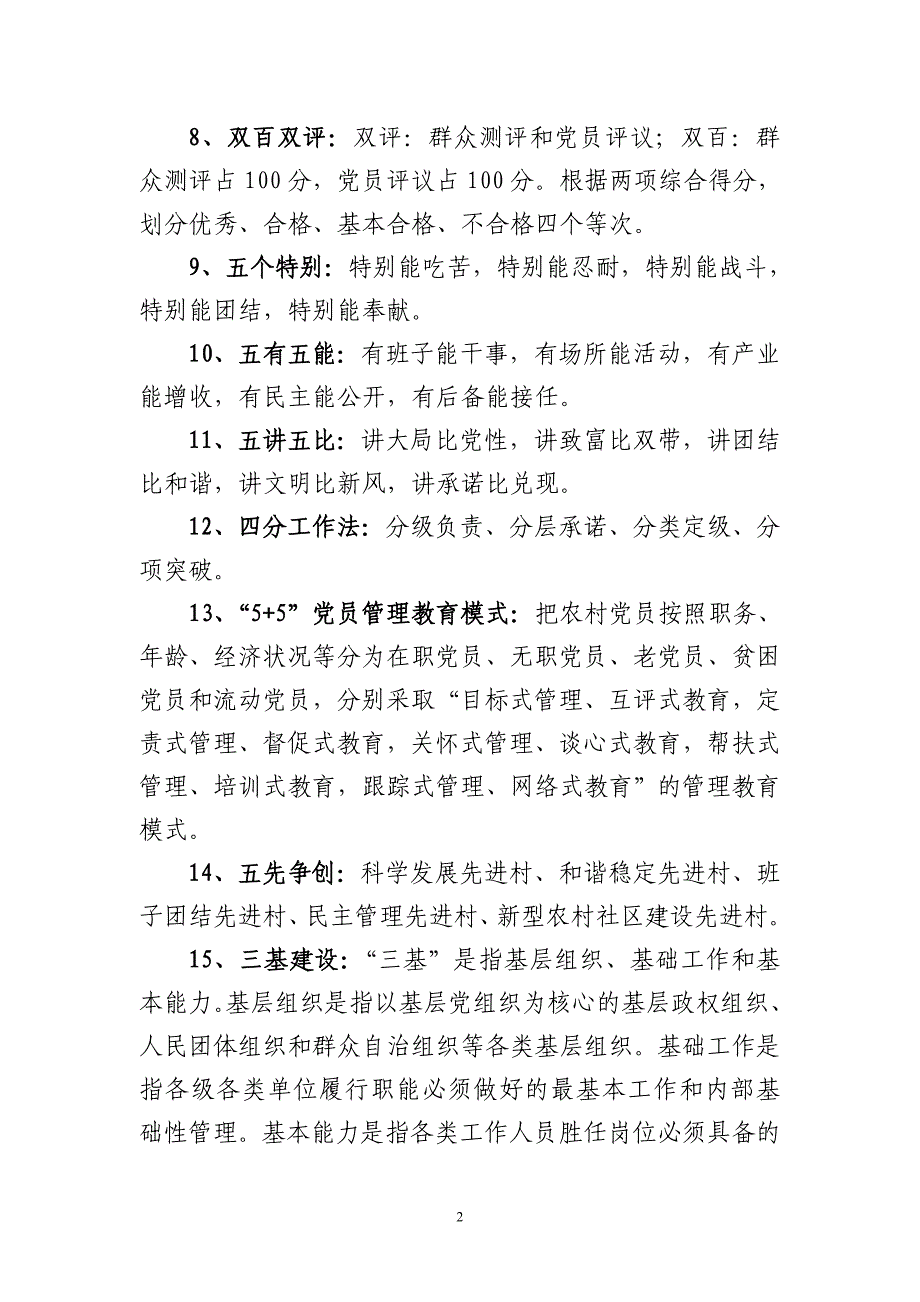 8、双百双评：双评：群众测评和党员评议；双百：群
众测评占 100 分，党员评议占 100 分。根据两项综合得分，
划分优秀、合格、基本合格、不合格四个等次。
9、五个特别：特别能吃苦，特别能忍耐，特别能战斗，
特别能团结，特别能奉献。
10、五有五能：有班子能干事，有场所能活动，有产业
能增收，有民主能公开，有后备能接任。
11、五讲五比：讲大局比党性，讲致富比双带，讲团结
比和谐，讲文明比新风，讲承诺比兑现。
12、四分工作法：分级负责、分层承诺、分类定级、分
项突破。
13、“5+5”党员管理教育模式：把农村党员按照职务、
年龄、经济状况等分为在职党员、无职党员、老党员、贫困
党员和流动党员，分别采取“目标式管理、互评式教育，定
责式管理、督促式教育，关怀式管理、谈心式教育，帮扶式
管理、培训式教育，跟踪式管理、网络式教育”的管理教育
模式。
14、五先争创：科学发展先进村、和谐稳定先进村、班
子团结先进村、民主管理先进村、新型农村社区建设先进村。
15、三基建设：“三基”是指基层组织、基础工作和基
本能力。基层组织是指以基层党组织为核心的基层政权组织、
人民团体组织和群众自治组织等各类基层组织。基础工作是
指各级各类单位履行职能必须做好的最基本工作和内部基
础性管理。基本能力是指各类工作人员胜任岗位必须具备的
2